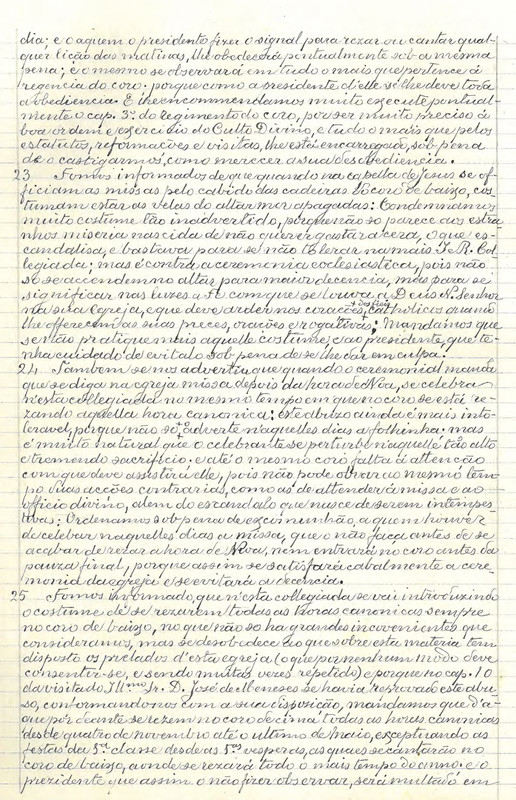 dia; e o a quem o presidente fizer o signal para rezar ou cantar qual-
quer lição das matinas, lhe obedecerá pontualmente sob a mesma
pena; e o mesmo se observará em tudo o mais que pertence á
regencia do coro: porque como a presidente d'elle se lhe deve toda
a obediencia. E lhe encommendamos muito execute pontual-
mente o cap. 3º do regimento do coro, por ser muito preciso á
boa ordem e exercicio do Culto Divino, e tudo o mais que pelos
estatutos, reformações e visitas, lhe está encarregado, sob pena
de o castigarmos, como merecer a sua desobediencia.
23 Fomos informados de que quando na capella de Jesus se of-
ficiam as missas pelo cabido das cadeiras do coro de baixo, cos-
tumam estar as velas do altar mor apagadas: Condemnamos
muito costume tão inadvertido, porque não só parece aos estra-
nhos miseria nascida de não querer gastar a cera, o que es-
candalisa, e bastava para se não tolerar na mais I. e R. Col-
legiada; mas é contra a ceremonia ecclesiastica, pois não
só se accendem no altar para maior decencia, mas para se
significar nas luzes a fé com que se louva a Deus N. Senhor
na sua Egreja, e que deve arder nos corações dos fieis catholicos quando
lhe offerecem as suas preces, orações e rogativas; Mandamos que
se não pratique mais aquelle costume, e ao presidente, que te-
nha cuidado de evital-o sob pena de se lhe dar em culpa.
24 Tambem se nos advertiu que quando o ceremonial manda
que se diga na egreja missa depois da hora de Nôa, se celebra
n'esta collegiada no mesmo tempo em que no coro se está re-
zando aquella hora canonica: este abuzo ainda é mais into-
leravel, porque não só adverte n'aquelles dias a folhinha: mas
é muito natural que o celebrante se perturbe n'aquelle tão alto
e tremendo sacrificio. e até o mesmo coro falta á attenção
com que deve assistir a elle, pois não pode obrar ao mesmo tem-
po duas acções contrarias, como as de attender á missa e ao
officio divino, alem do escandalo que nasce de serem intempes-
tivas: Ordenamos sob pena de excommunhão, a quem houver
de celebar naquelles dias a missa, que o não faça antes de se
acabar de rezar a hora de Nôa, nem entrará no coro antes da
pausa final, porque assim se satisfará cabalmente a cere-
monia da egreja e se evitará a decencia.
25 Fomos informado, que n'esta collegiada se vai introduzindo
o costume de se rezarem todas as horas canonicas sempre
no coro de baixo, no que não só ha grandes inconvenientes que
consideramos, mas se desobedece ao que sobre esta materia tem
disposto os prelados d'esta egreja (o que por nenhum modo deve
consentir-se, e sendo muitas vezes repetido) e porque no cap. 10
da visita do Illmo Sr. D. José de Menezes se havia reprovado este abu-
so, conformando-nos com a sua disposição, mandamos que d'a-
qui por deante se rezem no coro de cima todas as horas canonicas
desde quatro de novembro até o ultimo de Maio, exceptuando as
festas da 5ª classe desde as 5as vesperas, as quaes se cantarão no
coro de baixo, aonde se rezará todo o mais tempo do anno. e o
prezidente que assim o não fizer observar, será multado em